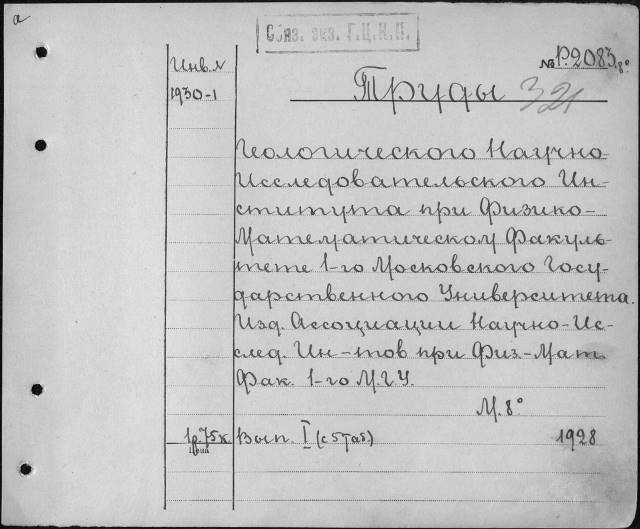 а
Обяз. экз. Г.Ц.К.П.
№ Р.2083 8°
Инв. №
Труды 321
1930-1
Геологического Научно-
Исследовательского Ин-
ститута при Физико-
Математическом Факуль-
тете 1-го Московского Госу-
дарственного Университета.
Изд. Ассоциации Научно-Ис-
след. Ин-тов при Физ.-Мат.
Фак. 1-го М.Г.У.
М. 8°
1р. 75к Вып. I (с 5 таб.) 1928